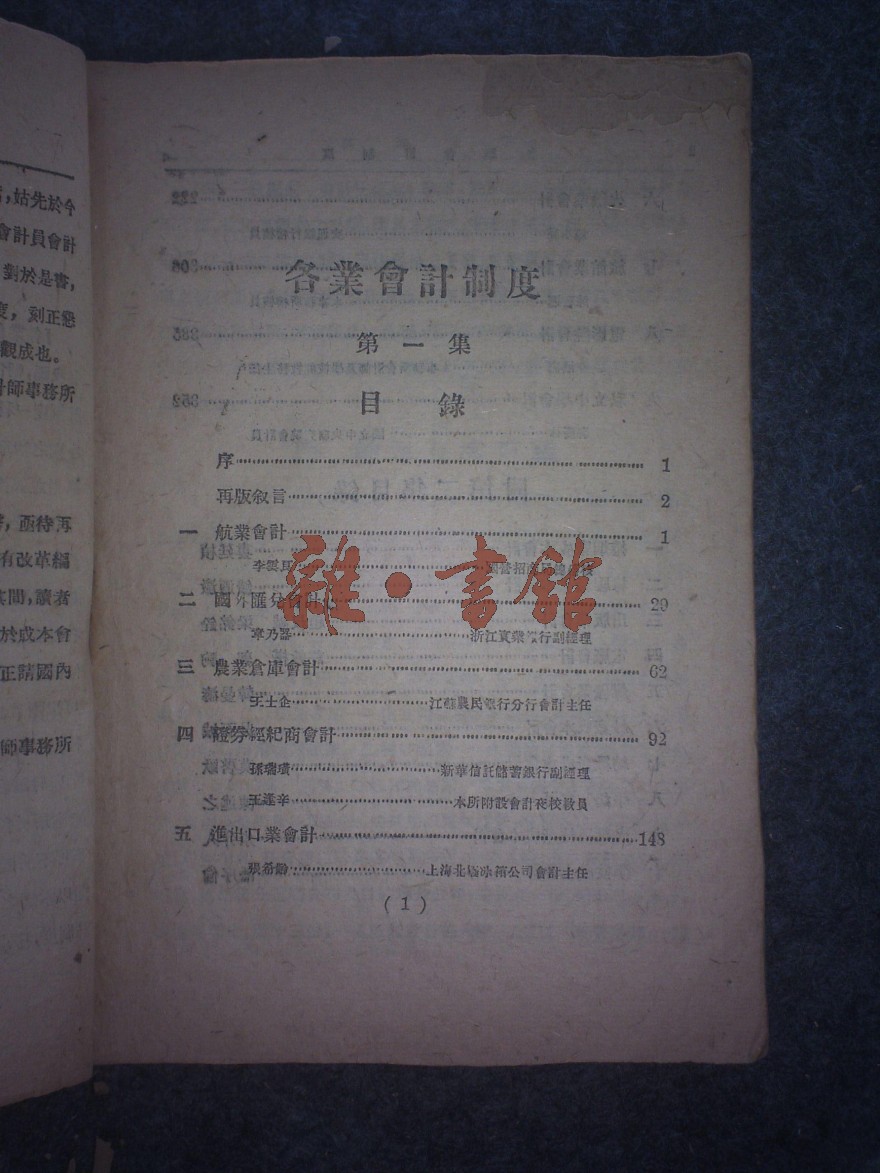 姑先於今
會計員會計
對於是書,
刻正懇
觀成也。
計師事務所
亟待再
有改革編
其間,讀者
於成本會
正請國內
師事務所
各業會計制度
第一集
目錄
序 1
再版敘言 2
一 航業會計 1
李雲良 國營招商局總
二 國外匯兌會計 29
章乃器 浙江實業銀行副經理
三 農業倉庫會計 62
王士企 江蘇農民銀行分行會計主任
四 證券經紀商會計 92
孫瑞璜 新華信託儲蓄銀行副經理
王逢辛 本所附設會計夜校教員
五 進出口業會計 148
張希 上海北極冰箱公司會計主任
(1)
雜·書館